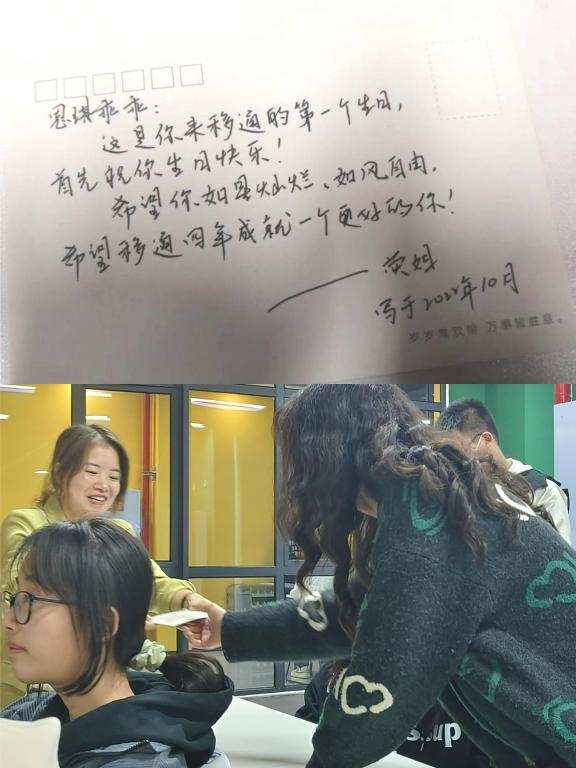 思琪乖乖：
这是你来移通的第一个生日，
首先祝你生日快乐！
希望你如星灿烂、如风自由，
希望移通四年成就一个更好的你！
——荧姐
写于2022年10月
岁岁常欢愉 万事皆胜意。